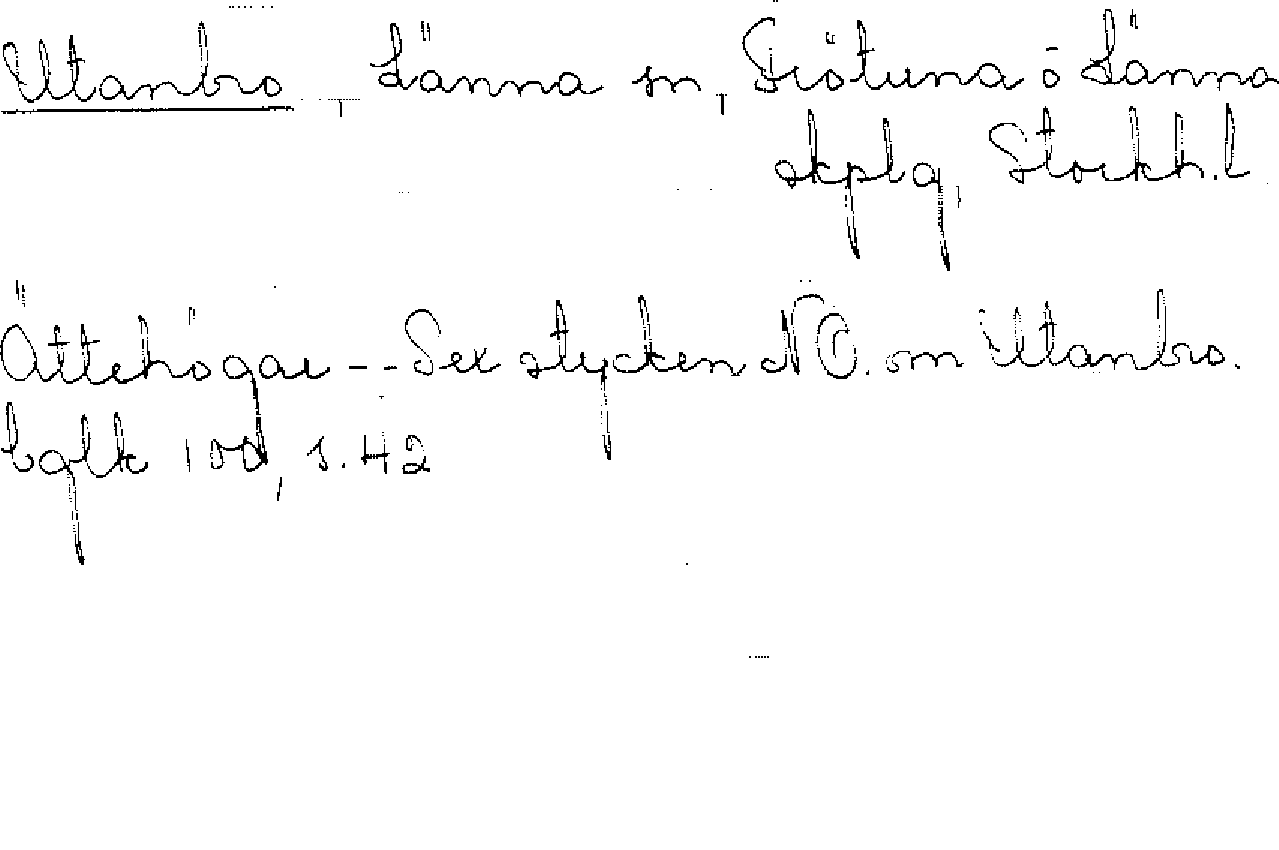 Utanbro, Länna sn, Frötuna o Länna
skplg, Stockh. l
Ättehögar -- Sex stycken NO. om Utanbro.
bglk 100, s. 42